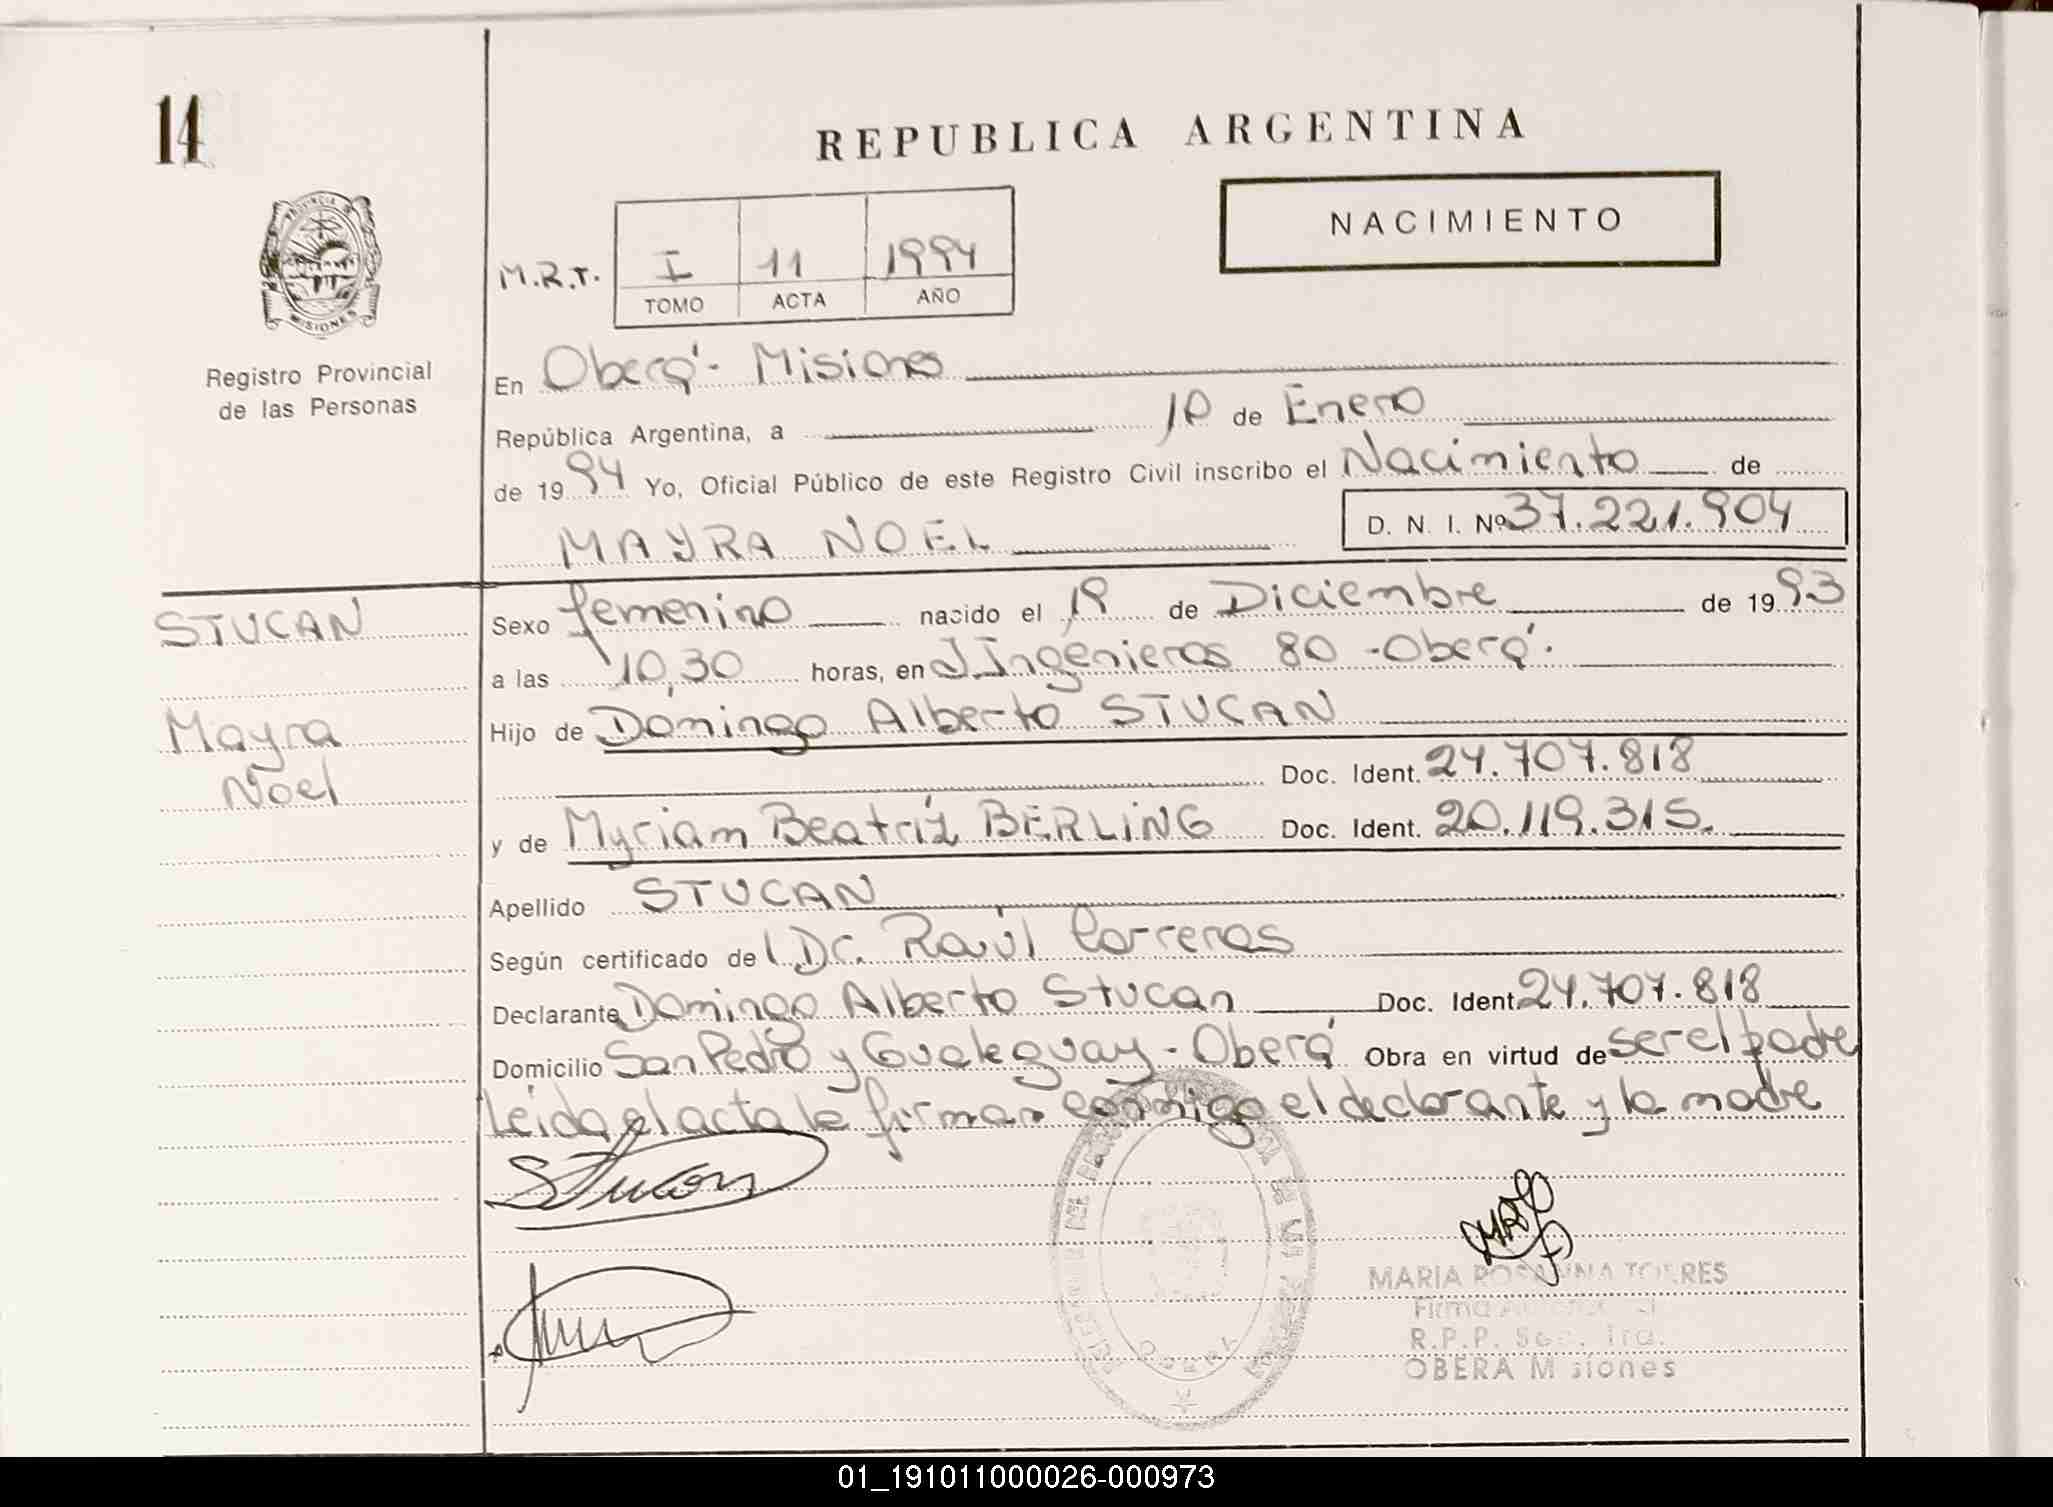 14
REPUBLICA ARGENTINA
NACIMIENTO
PROVINCIA DE
MISIONES
Registro Provincial
de las Personas
M.R.T. I 11 1994
TOMO ACTA AÑO
En Oberá - Misiones
República Argentina, a 10 de Enero
de 1994 Yo, Oficial Público de este Registro Civil inscribo el Nacimiento de
MAYRA NOEL D. N. I. Nº 37.221.904
STUCAN
Mayra
Noel
Sexo femenino nacido el 19 de Diciembre de 1993
a las 10,30 horas, en J Ingenieros 80 - Oberá.
Hijo de Domingo Alberto STUCAN
Doc. Ident. 24.707.818
y de Myriam Beatríz BERLING Doc. Ident. 20.119.315.
Apellido STUCAN
Según certificado de Dr. Raúl Carreras
Declarante Domingo Alberto Stucan Doc. Ident. 24.707.818
Domicilio San Pedro y Gualeguay - Oberá Obra en virtud de ser el padre
Leida el acta la firman conmigo el declarante y la madre
Stucan
MARIA ROSANNA TORRES
Firma
R.P.P. Sec. 1ra.
OBERA Misiones
01_191011000026-000973